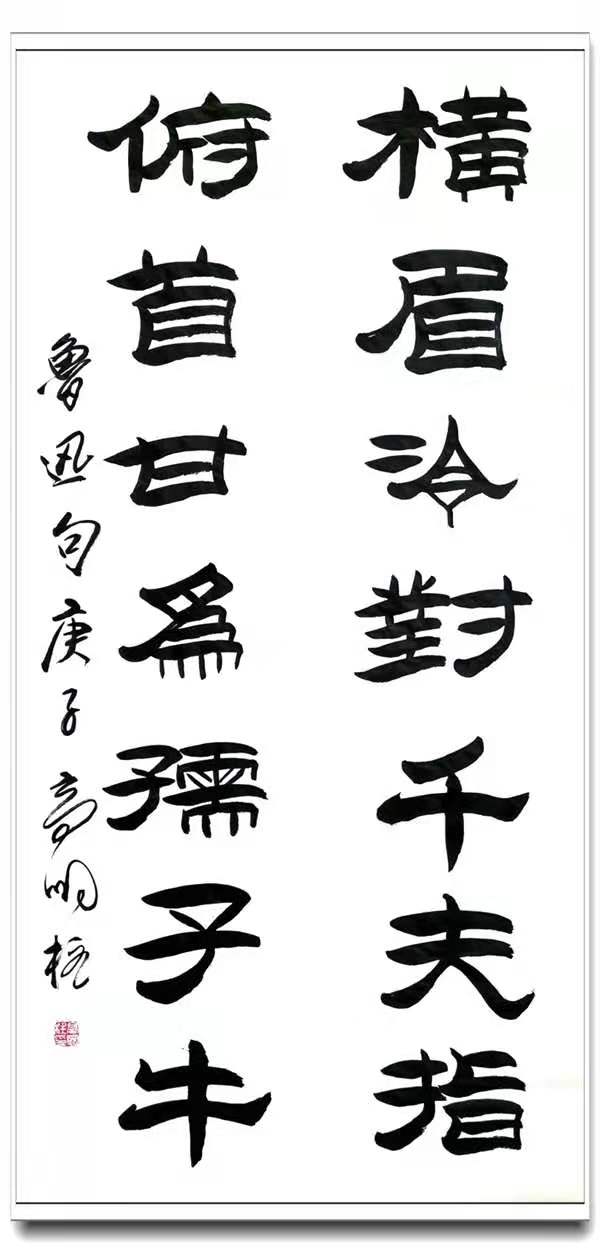 橫眉冷對千夫指
俯首甘爲孺子牛
魯迅句庚子高明柱